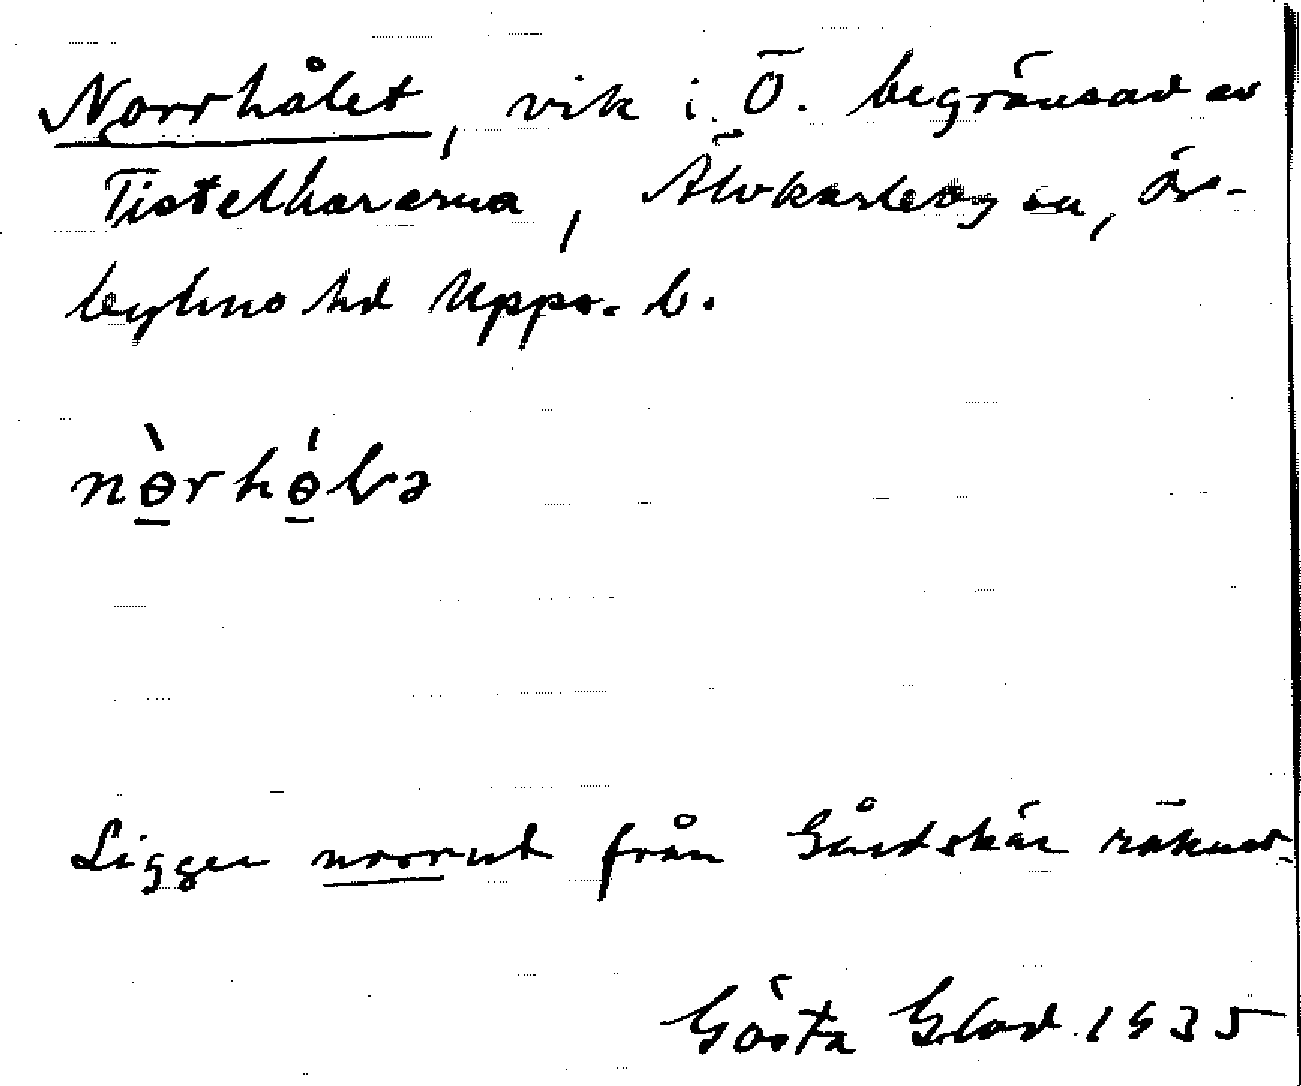 Norrhålet, vik i Ö. begränsad av
Tistelhararna, Älvkarleby sn, Ör-
byhus hd Upps. l.
nòrhólə
Ligger norrut från Gårdskär räknat
Gösta Glad 1935